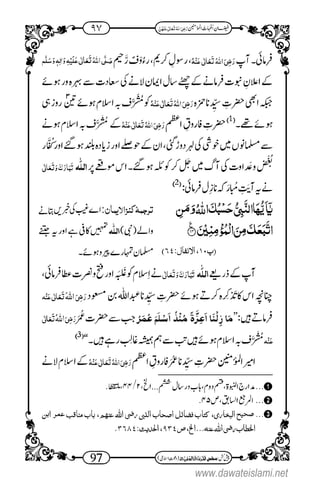 فیضانِ اُمَّہاتُ الْمُؤْمِنِیْن رَضِیَ اللہُ تَعَالٰی عَنْہُنَّ ٩٧
فرمائی۔ آپ رَضِیَ اللہُ تَعَالٰی عَنْہُ، رسولِ کریم، رَءُوْفٌ رَّحیم صَلَّی اللہُ تَعَالٰی عَلَیْہِ وَاٰلِہٖ وَسَلَّم
کے اعلانِ نبوت فرمانے کے چھٹے سال ایمان لانے کی سعادت سے بہرہ ور ہوئے
جبکہ ابھی حضرت سیِّدنا حمزہ رَضِیَ اللہُ تَعَالٰی عَنْہُ کو مُشَرَّف بہ اسلام ہوئے تین ہی روز
ہوئے تھے۔(1) حضرت فاروقِ اعظم رَضِیَ اللہُ تَعَالٰی عَنْہُ کے مُشَرَّف بہ اسلام ہونے
سے مسلمانوں میں خوشی کی لہر دوڑ گئی، ان کے حوصلے اور زیادہ بلند ہو گئے اور کُفَّار
بغض و عداوت کی آگ میں جل کر کوئلہ ہو گئے۔ اس موقعے پر اللہ تَبَارَکَ وَتَعَالٰی
نے یہ آیتِ مُبارَکہ نازِل فرمائی:(2)
یٰۤاَیُّهَا النَّبِیُّ حَسْبُكَ اللّٰهُ وَ مَنِ
اتَّبَعَكَ مِنَ الْمُؤْمِنِیْنَ
(پ١٠، الانفال: ٦٤)
ترجمۂ کنزالایمان: اے غیب کی خبریں بتانے
والے (نبی) اللہ تمہیں کافی ہے اور یہ جتنے
مسلمان تمہارے پیرو ہوئے۔
اللہ تَبَارَکَ وَتَعَالٰی نے اسلام کو غلبہ اور فتح و نصرت عطا فرمائی،
چنانچہ اس کا تذکرہ کرتے ہوئے حضرت سیِّدنا عبداللہ بن مسعود رَضِیَ اللہُ تَعَالٰی عَنْہُ
فرماتے ہیں: ”مَا زِلْنَا اَعِزَّۃً مُنْذُ اَسْلَمَ عُمَرُ جب سے حضرت عُمَر رَضِیَ اللہُ تَعَالٰی
عَنْہُ مُشَرَّف بہ اسلام ہوئے ہیں تب سے ہم ہمیشہ غالب رہے ہیں۔“(3)
امیر المؤمنین حضرت سیِّدنا عُمَر فاروقِ اعظم رَضِیَ اللہُ تَعَالٰی عَنْہُ کے اسلام لانے کے
1 ... مدارج النبوۃ، قسم دوم، باب
2 ... المرجع السابق، ص٤٥.
3 ... صحیح البخاری، کتاب فضائل اصحاب النبی رضی اللہ عنهم، باب مناقب عمر ابن
الخطاب رضی اللہ عنه... الخ، ص٩٣٤، الحدیث: ٣٦٨٤.
97
www.dawateislami.net